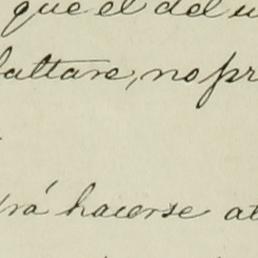 que el del u
faltare, no pr
rá hacerse at